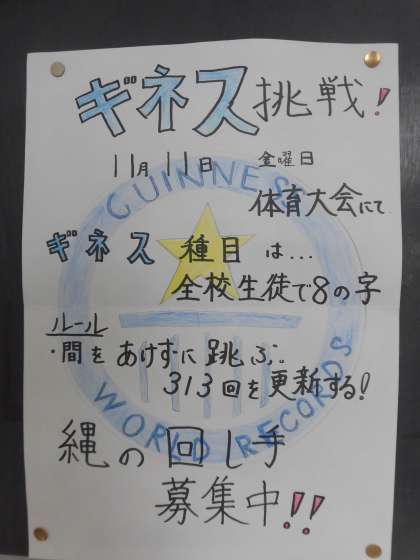 ギネス挑戦!
11月11日 金曜日
GUINNESS
体育大会にて
ギネス 種目は…
全校生徒で8の字
ルール
・間をあけずに跳ぶ。
313回を更新する!
WORLD RECORDS
縄の回し手
募集中!!